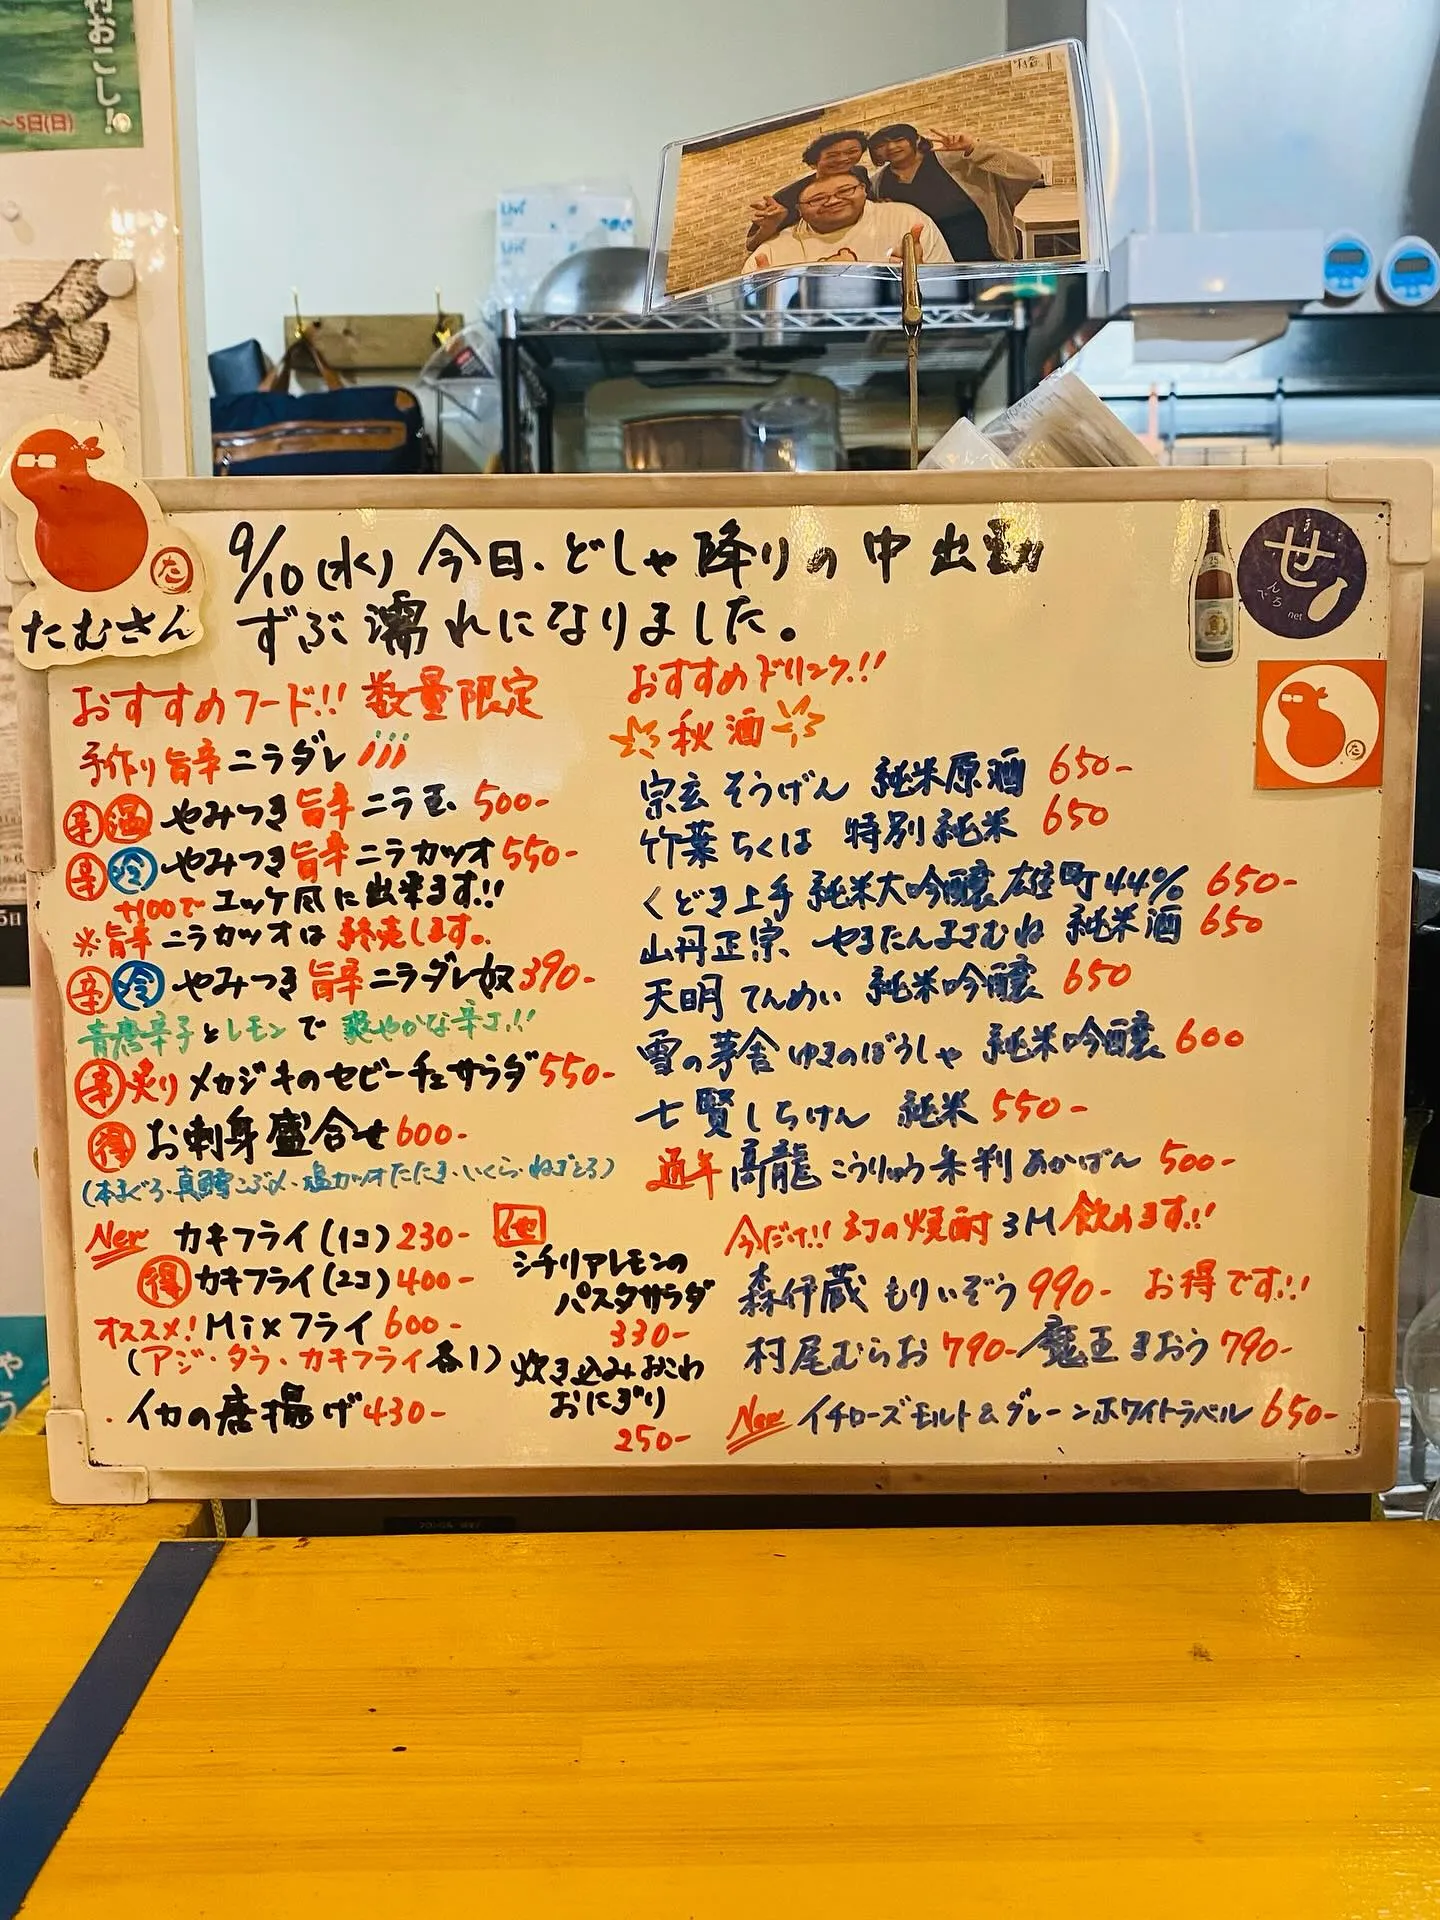 おこし!
〜5日(日)
たむさん
た
せ
net
9/10(水)今日、どしゃ降りの中出勤
ずぶ濡れになりました。
おすすめフード!! 数量限定
手作り旨辛ニラダレ
辛 温 やみつき旨辛ニラ玉 500-
辛 冷 やみつき旨辛ニラカツオ 550-
+100でユッケ風に出来ます!!
※旨辛ニラカツオは終売します。
辛 冷 やみつき旨辛ニラダレ奴 390-
青唐辛子とレモンで爽やかな辛さ!!
辛 炙り メカジキのセビーチェサラダ 550-
得 お刺身盛合せ 600-
(本まぐろ・真鯛こぶ〆・塩カツオたたき・いくら・ねぎとろ)
New カキフライ(1コ) 230-
得 カキフライ(2コ) 400-
オススメ! Mixフライ 600-
(アジ・タラ・カキフライ各1)
・イカの唐揚げ 430-
他
シチリアレモンの
パスタサラダ
330-
炊き込みおこわ
おにぎり
250-
おすすめドリンク!!
秋酒
宗玄 そうげん 純米原酒 650-
竹葉 ちくは 特別純米 650
くどき上手 純米大吟醸 雄町44% 650-
山丹正宗 やまたんまさむね 純米酒 650
天明 てんめい 純米吟醸 650
雪の茅舎 ゆきのぼうしゃ 純米吟醸 600
七賢 しちけん 純米 550-
通年 高龍 こうりゅう 朱判 あかばん 500-
今だけ!! 幻の焼酎3M飲めます!!
森伊蔵 もりいぞう 990- お得です!!
村尾 むらお 790- 魔王 まおう 790-
New イチローズモルト&グレーンホワイトラベル 650-